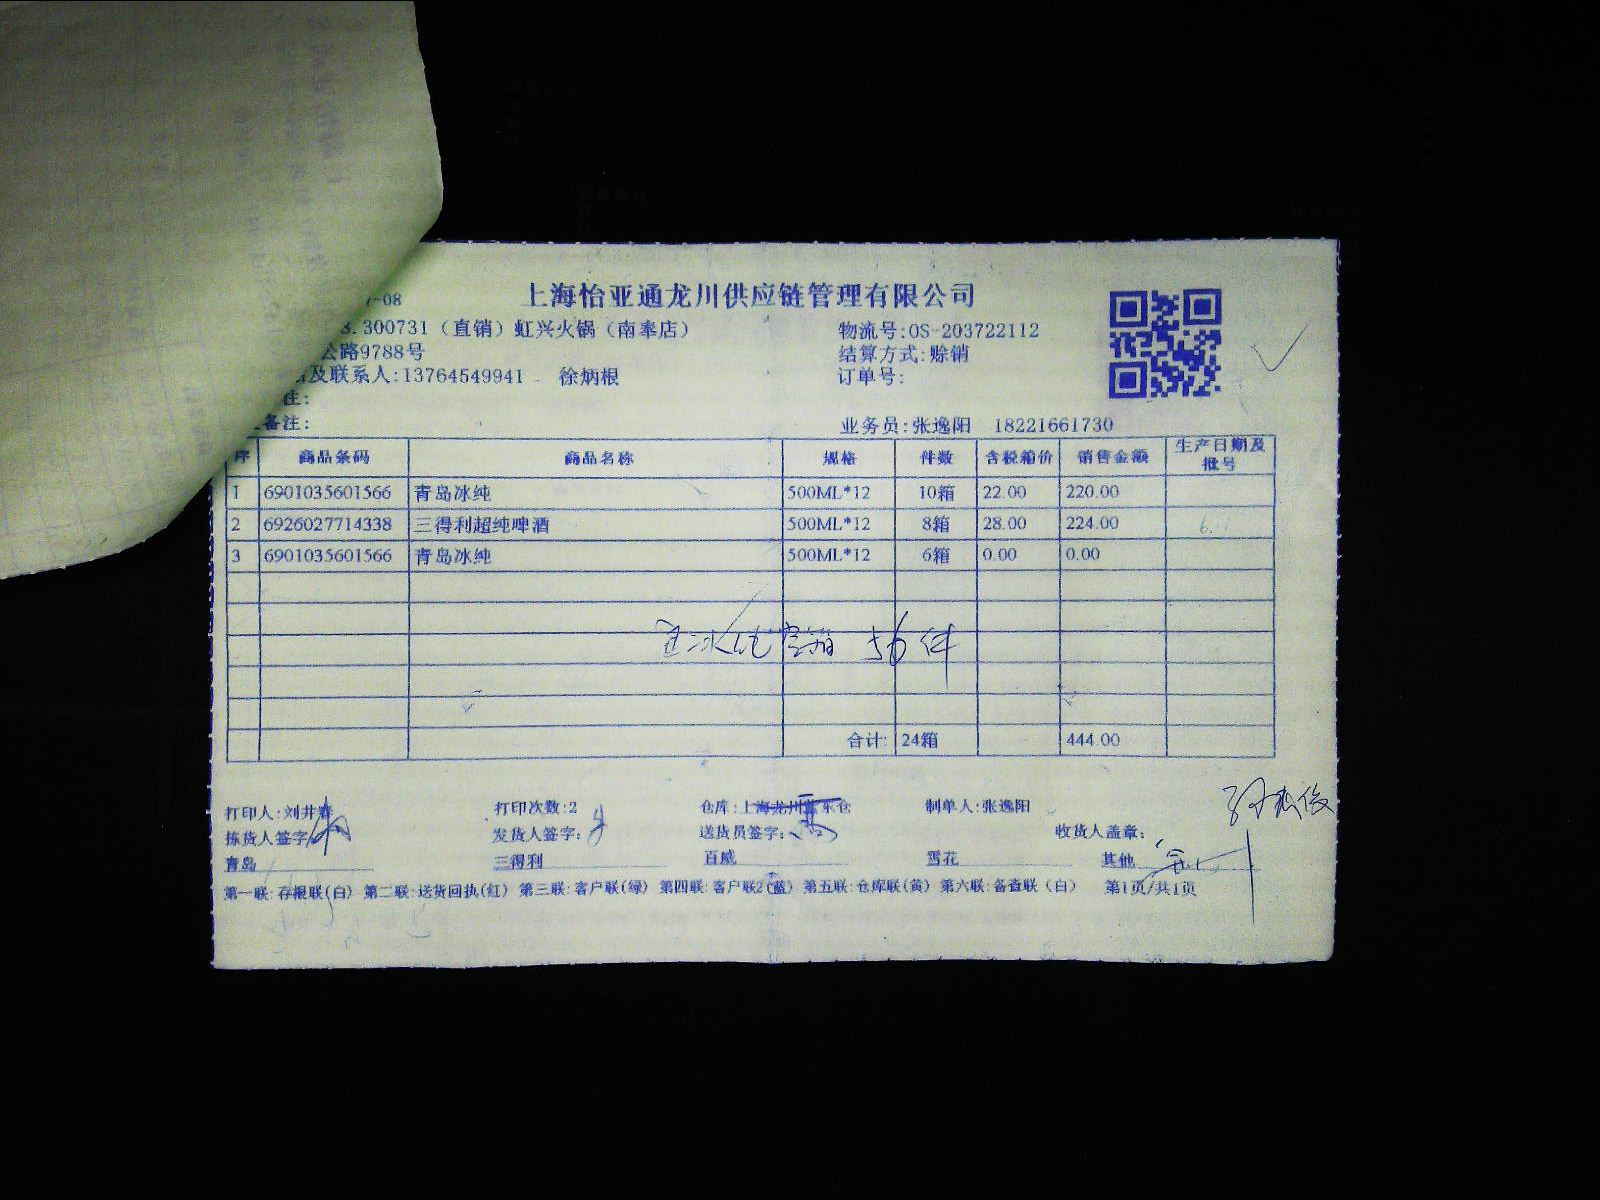 上海怡亚通龙川供应链管理有限公司
-08
300731（直销）虹兴火锅（南奉店）
物流号:OS-203722112
公路9788号
结算方式:赊销
及联系人:13764549941 徐炳根
订单号:
注:
备注:
业务员:张逸阳 18221661730
序 商品条码 商品名称 规格 件数 含税箱价 销售金额 生产日期及批号
1 6901035601566 青岛冰纯 500ML*12 10箱 22.00 220.00
2 6926027714338 三得利超纯啤酒 500ML*12 8箱 28.00 224.00
3 6901035601566 青岛冰纯 500ML*12 6箱 0.00 0.00
冰纯空箱 56件
合计: 24箱 444.00
打印人:刘井春 打印次数:2 仓库:上海龙川 东仓 制单人:张逸阳
拣货人签字: 发货人签字: 送货员签字: 收货人盖章:
青岛 三得利 百威 雪花 其他
第一联:存根联(白) 第二联:送货回执(红) 第三联:客户联(绿) 第四联:客户联2(蓝) 第五联:仓库联(黄) 第六联:备查联（白） 第1页/共1页